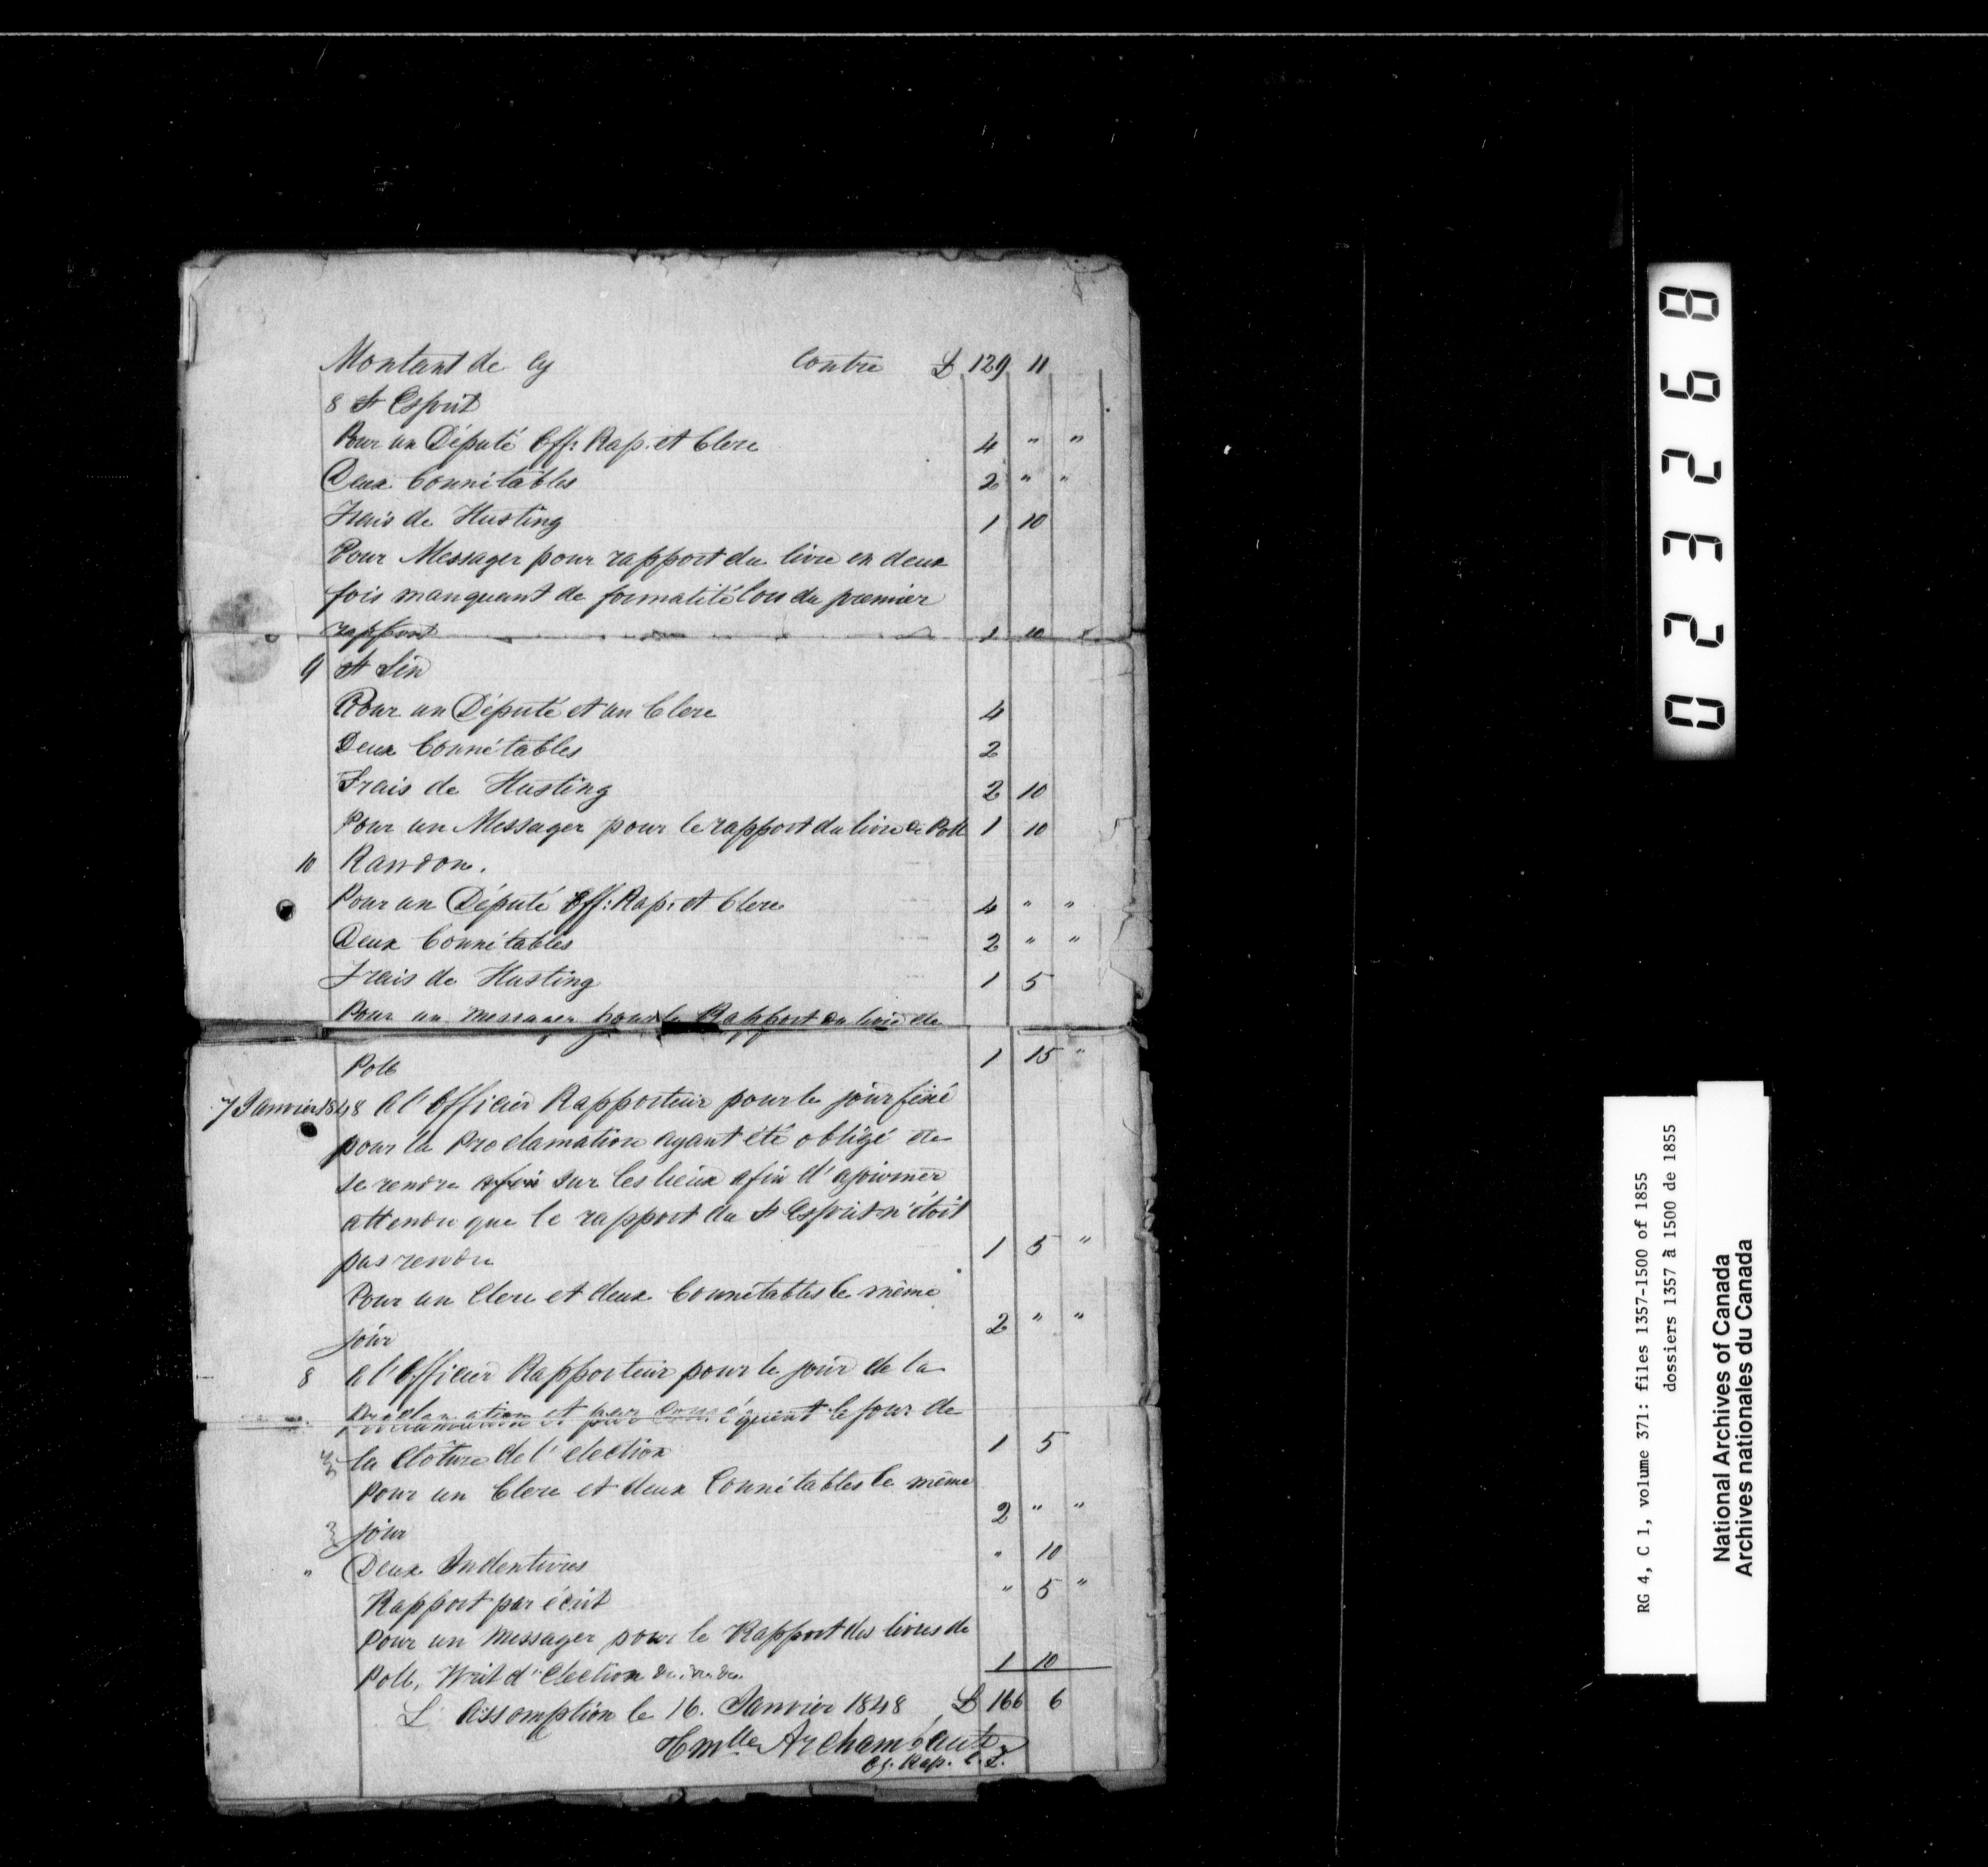 Montant de Cy Contre £ 129 11
8 St Esprit
Pour un Député Off: Rap. et Clerc 4 " "
Deux Connétables 2 " "
Frais de Husting 1 10
Pour Messager pour rapport du livre en deux
fois manquant de formalité lors du premier
rapport 1 10
9 St Lin
Pour un Député et un Clerc 4
Deux Connétables 2
Frais de Husting 2 10
Pour un Messager pour le rapport du livre de Poll 1 10
10 Rawdon.
Pour un Député Off: Rap. et Clerc 4 " "
Deux Connétables 2 " "
Frais de Husting 1 5
Pour un messager pour le Rapport du livre de
Poll 1 15 "
7 Janvier 1848 A l'Officier Rapporteur pour le jour fixé
pour la Proclamation ayant été obligé de
se rendre afin sur les lieux afin d'ajourner
attendu que le rapport du St Esprit n'étoit
pas rendu 1 5 "
Pour un Clerc et deux Connétables le même
jour 2 " "
8 A l'Officier Rapporteur pour le jour de la
Proclamation et par conséquent le jour de
la Clôture de l'election 1 5
Pour un Clerc et deux Connétables le même
jour 2 " "
" Deux Indentures " 10
Rapport par écrit " 5 "
Pour un messager pour le Rapport des livres de
Poll, Writ d'Election &c. &c. &c. 1 10
L'Assomption le 16. Janvier 1848 £ 166 6
Cmlle Archambault
Of. Rap. C. L.
0 2 3 2 6 8
RG 4, C 1, volume 371: files 1357-1500 of 1855
dossiers 1357 à 1500 de 1855
National Archives of Canada
Archives nationales du Canada